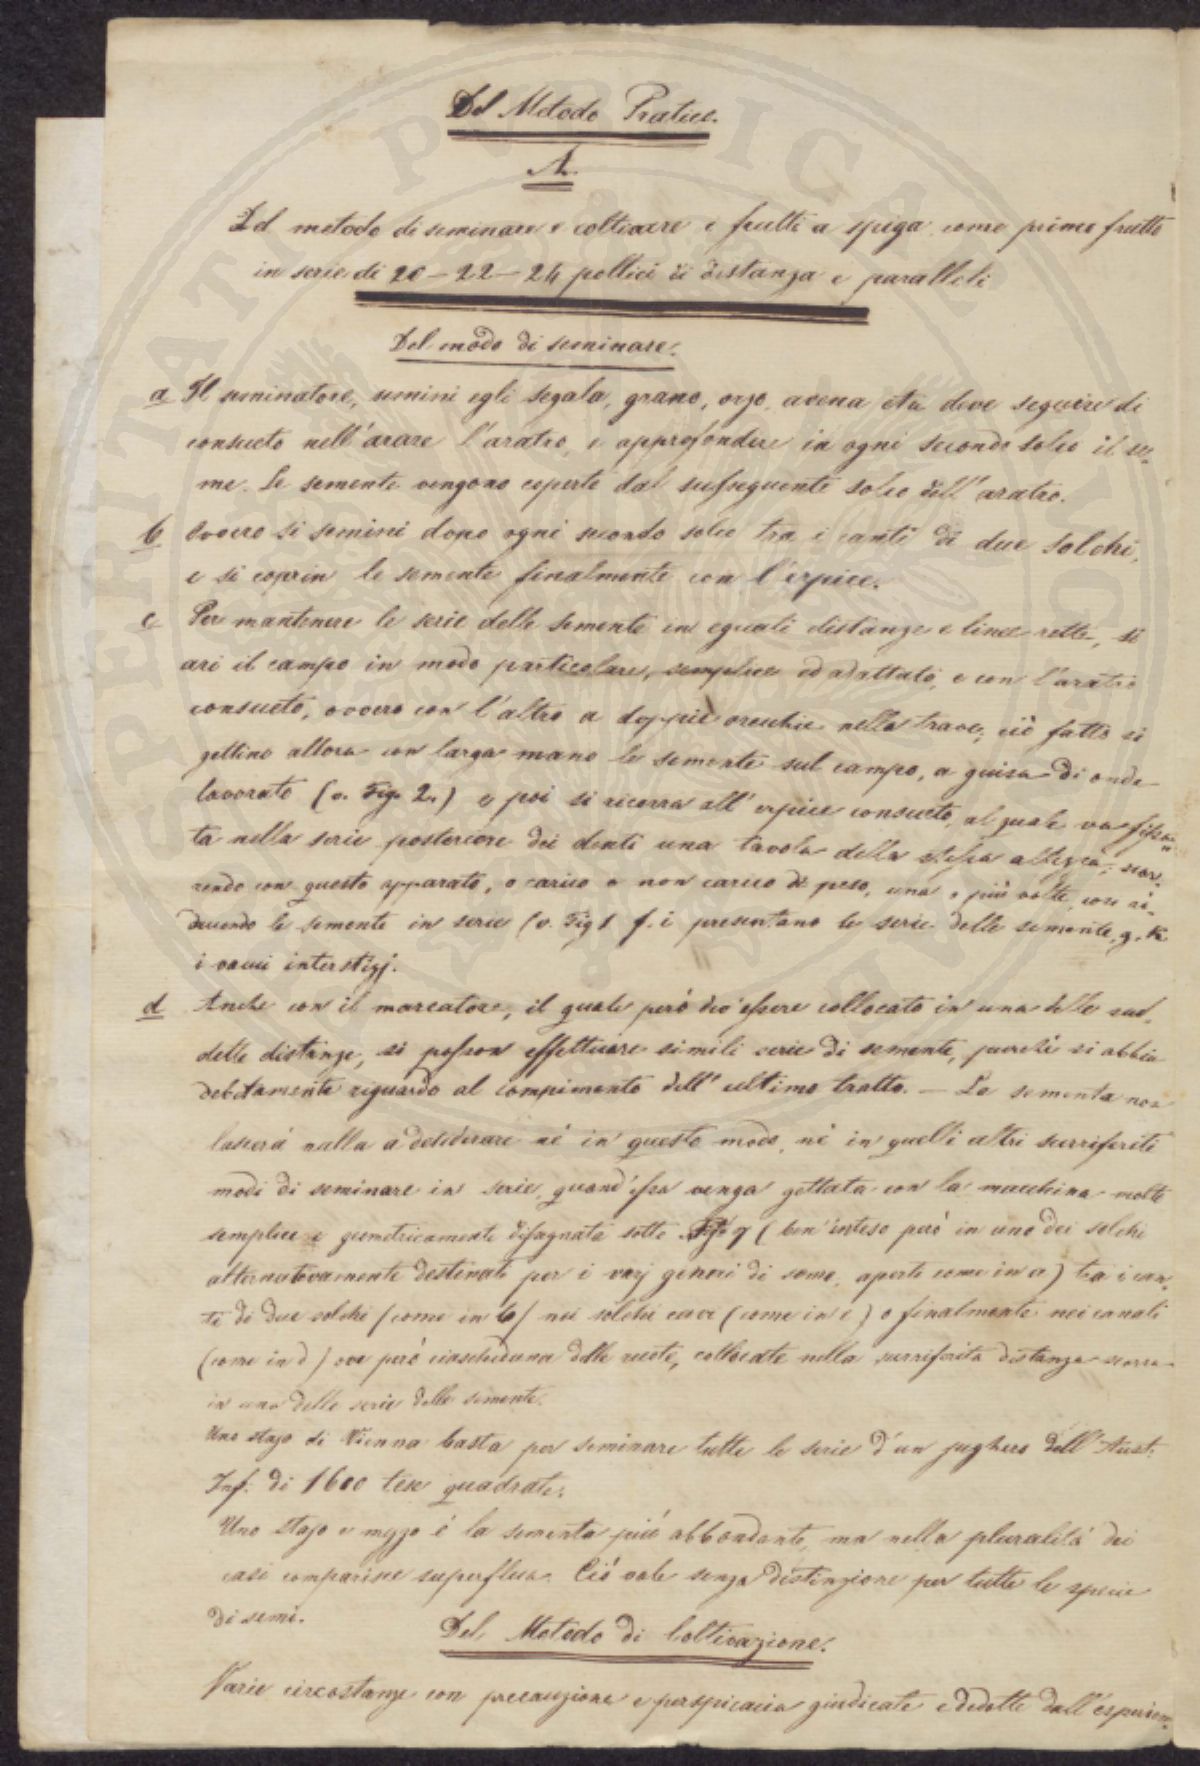 Del Metodo Pratico.
A.
Del metodo di seminare e coltivare i frutti a spiga come primo frutto
in serie di 20 – 22 – 24 pollici di distanza e paralleli
Del modo di seminare.
a Il seminatore, semini egli segala, grano, orzo, avena etc. deve seguire di
consueto nell'arare l'aratro, e approfondire in ogni secondo solco il se-
me. Le semente vengono coperte dal susseguente solco dell'aratro.
b Ovvero si semini dopo ogni secondo solco tra i canti di due solchi,
e si copron le semente finalmente con l'erpice.
c Per mantenere le serie delle semente in eguali distanze e linee rette, si
ari il campo in modo particolare, semplice ed adattato, e con l'aratro
consueto, ovvero con l'altro a doppie orecchie nella trave; ciò fatto si
gettino allora con larga mano le semente sul campo, a guisa di onde
lavorato (v. Fig. 2.) e poi si ricorra all'erpice consueto, al quale va fissa-
ta nella serie posteriore dei denti una tavola della stessa altezza, scor-
rendo con questo apparato, o carico o non carico di peso, una o più volte, così ri-
ducendo le semente in serie (v. Fig 1 f. i presentano le serie delle semente, g. k
i vacui interstizj.
d Anche con il marcatore, il quale però dev'essere collocato in una delle sud-
dette distanze, si posson effettuare simili serie di semente, purchè si abbia
debitamente riguardo al compimento dell'ultimo tratto. — La sementa non
lascerà nulla a desiderare nè in questo modo, nè in quelli altri surriferiti
modi di seminare in serie, quand'essa venga gettata con la macchina molto
semplice e geometricamente disegnata sotto Fig. 9 (ben'inteso però in uno dei solchi
alternativamente destinati per i varj generi di seme, aperti come in a) tra i can-
ti di due solchi (come in b) nei solchi cavi (come in c) o finalmente nei canali
(come in d) ove però ciascheduna delle ruote, collocate nella surriferita distanza scorra
in una delle serie delle semente.
Uno stajo di Vienna basta per seminare tutte le serie d'un jughero dell'Aust:
Inf. di 1600 tese quadrate.
Uno stajo e mezzo è la sementa più abbondante, ma nella pluralità dei
casi comparisce superflua. Ciò vale senza distinzione per tutte le specie
di semi.
Del Metodo di Coltivazione.
Varie circostanze con precauzione e perspicacia giudicate e dedotte dall'esperien-